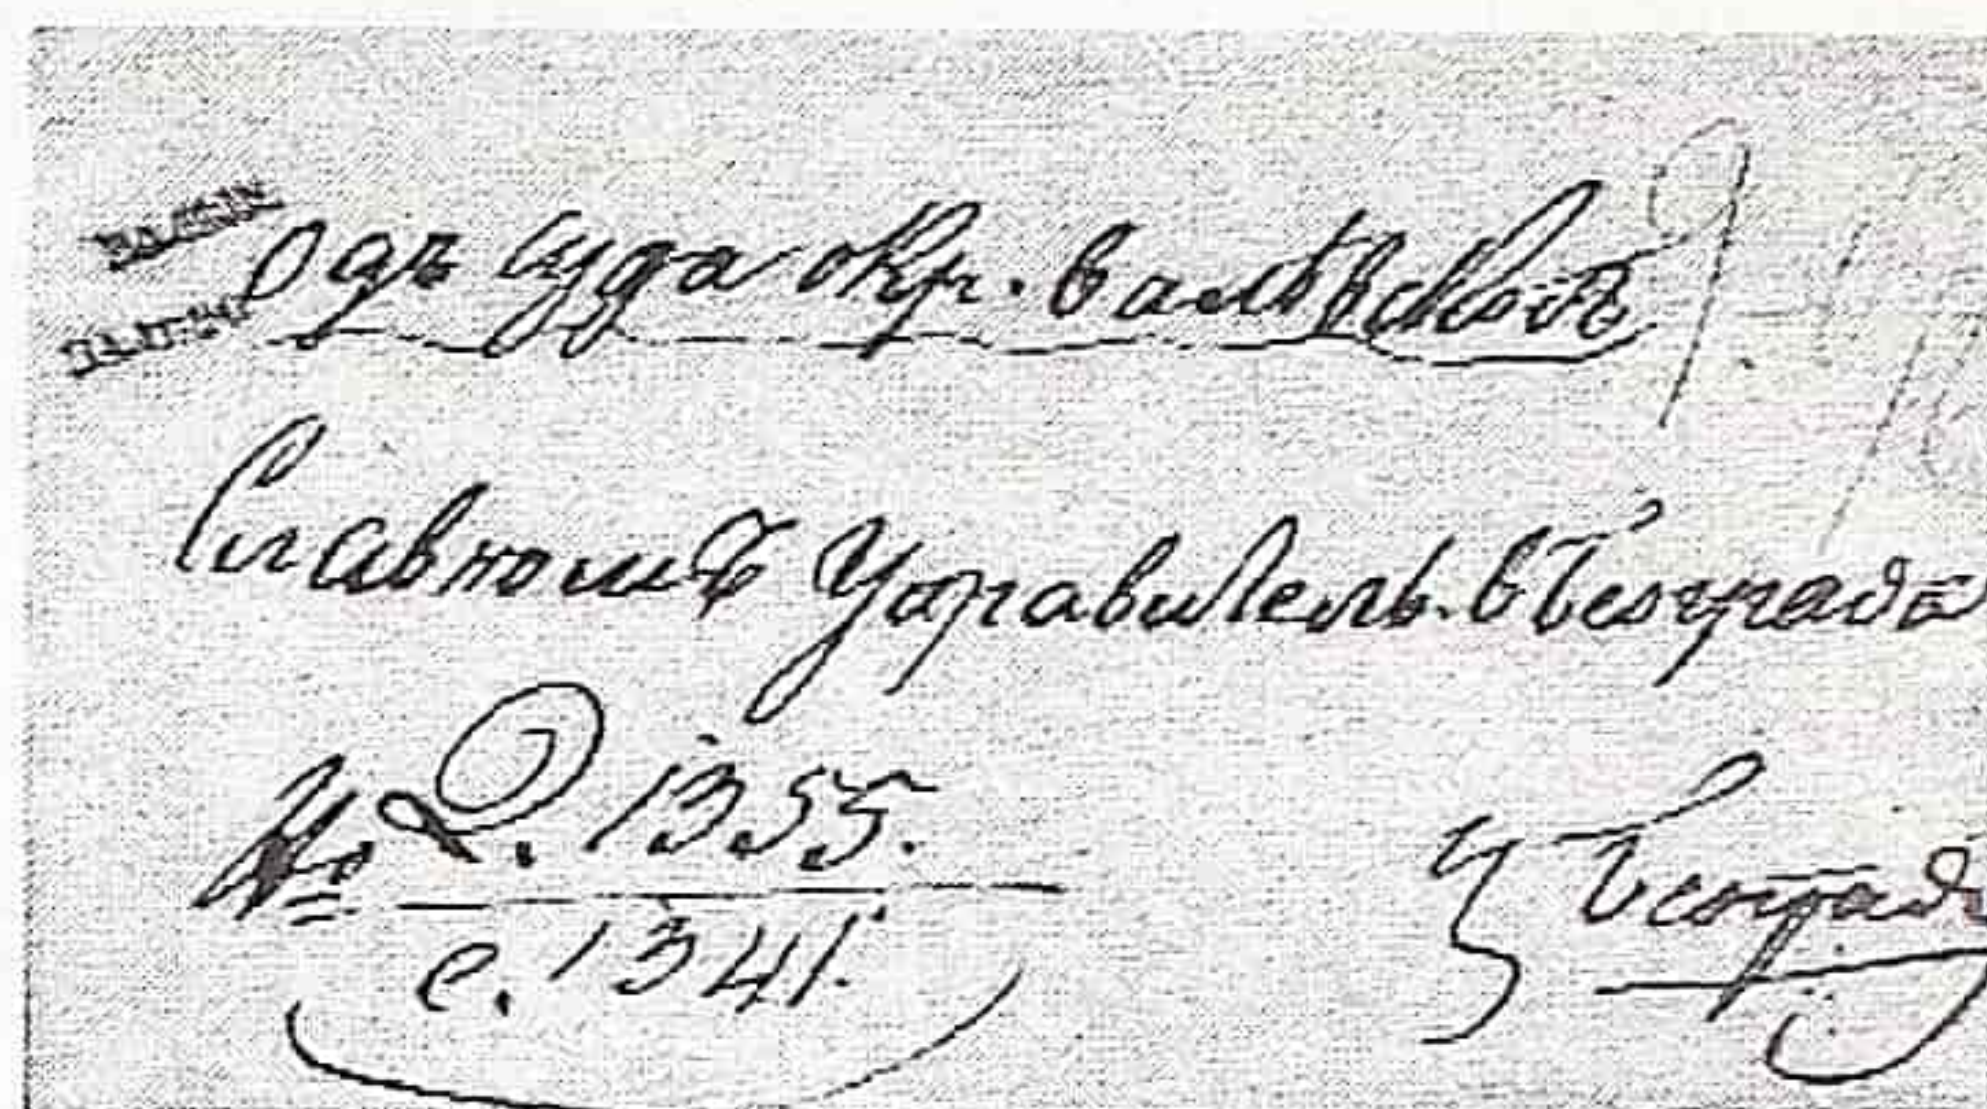 Одъ Суда окр. валѣвскогъ
Славномъ Управитель. в. Београда
No 2. 1355.
е. 1341.
у Београд